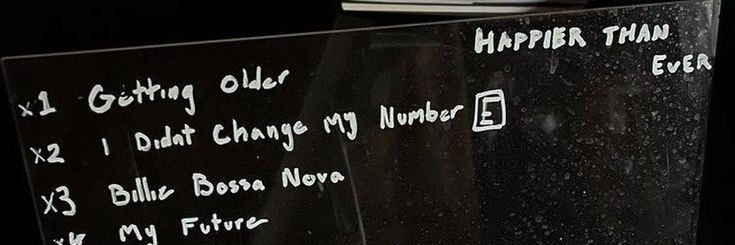 HAPPIER THAN
EVER
x1 Getting Older
x2 I Didnt Change My Number E
x3 Billie Bossa Nova
x4 My Future